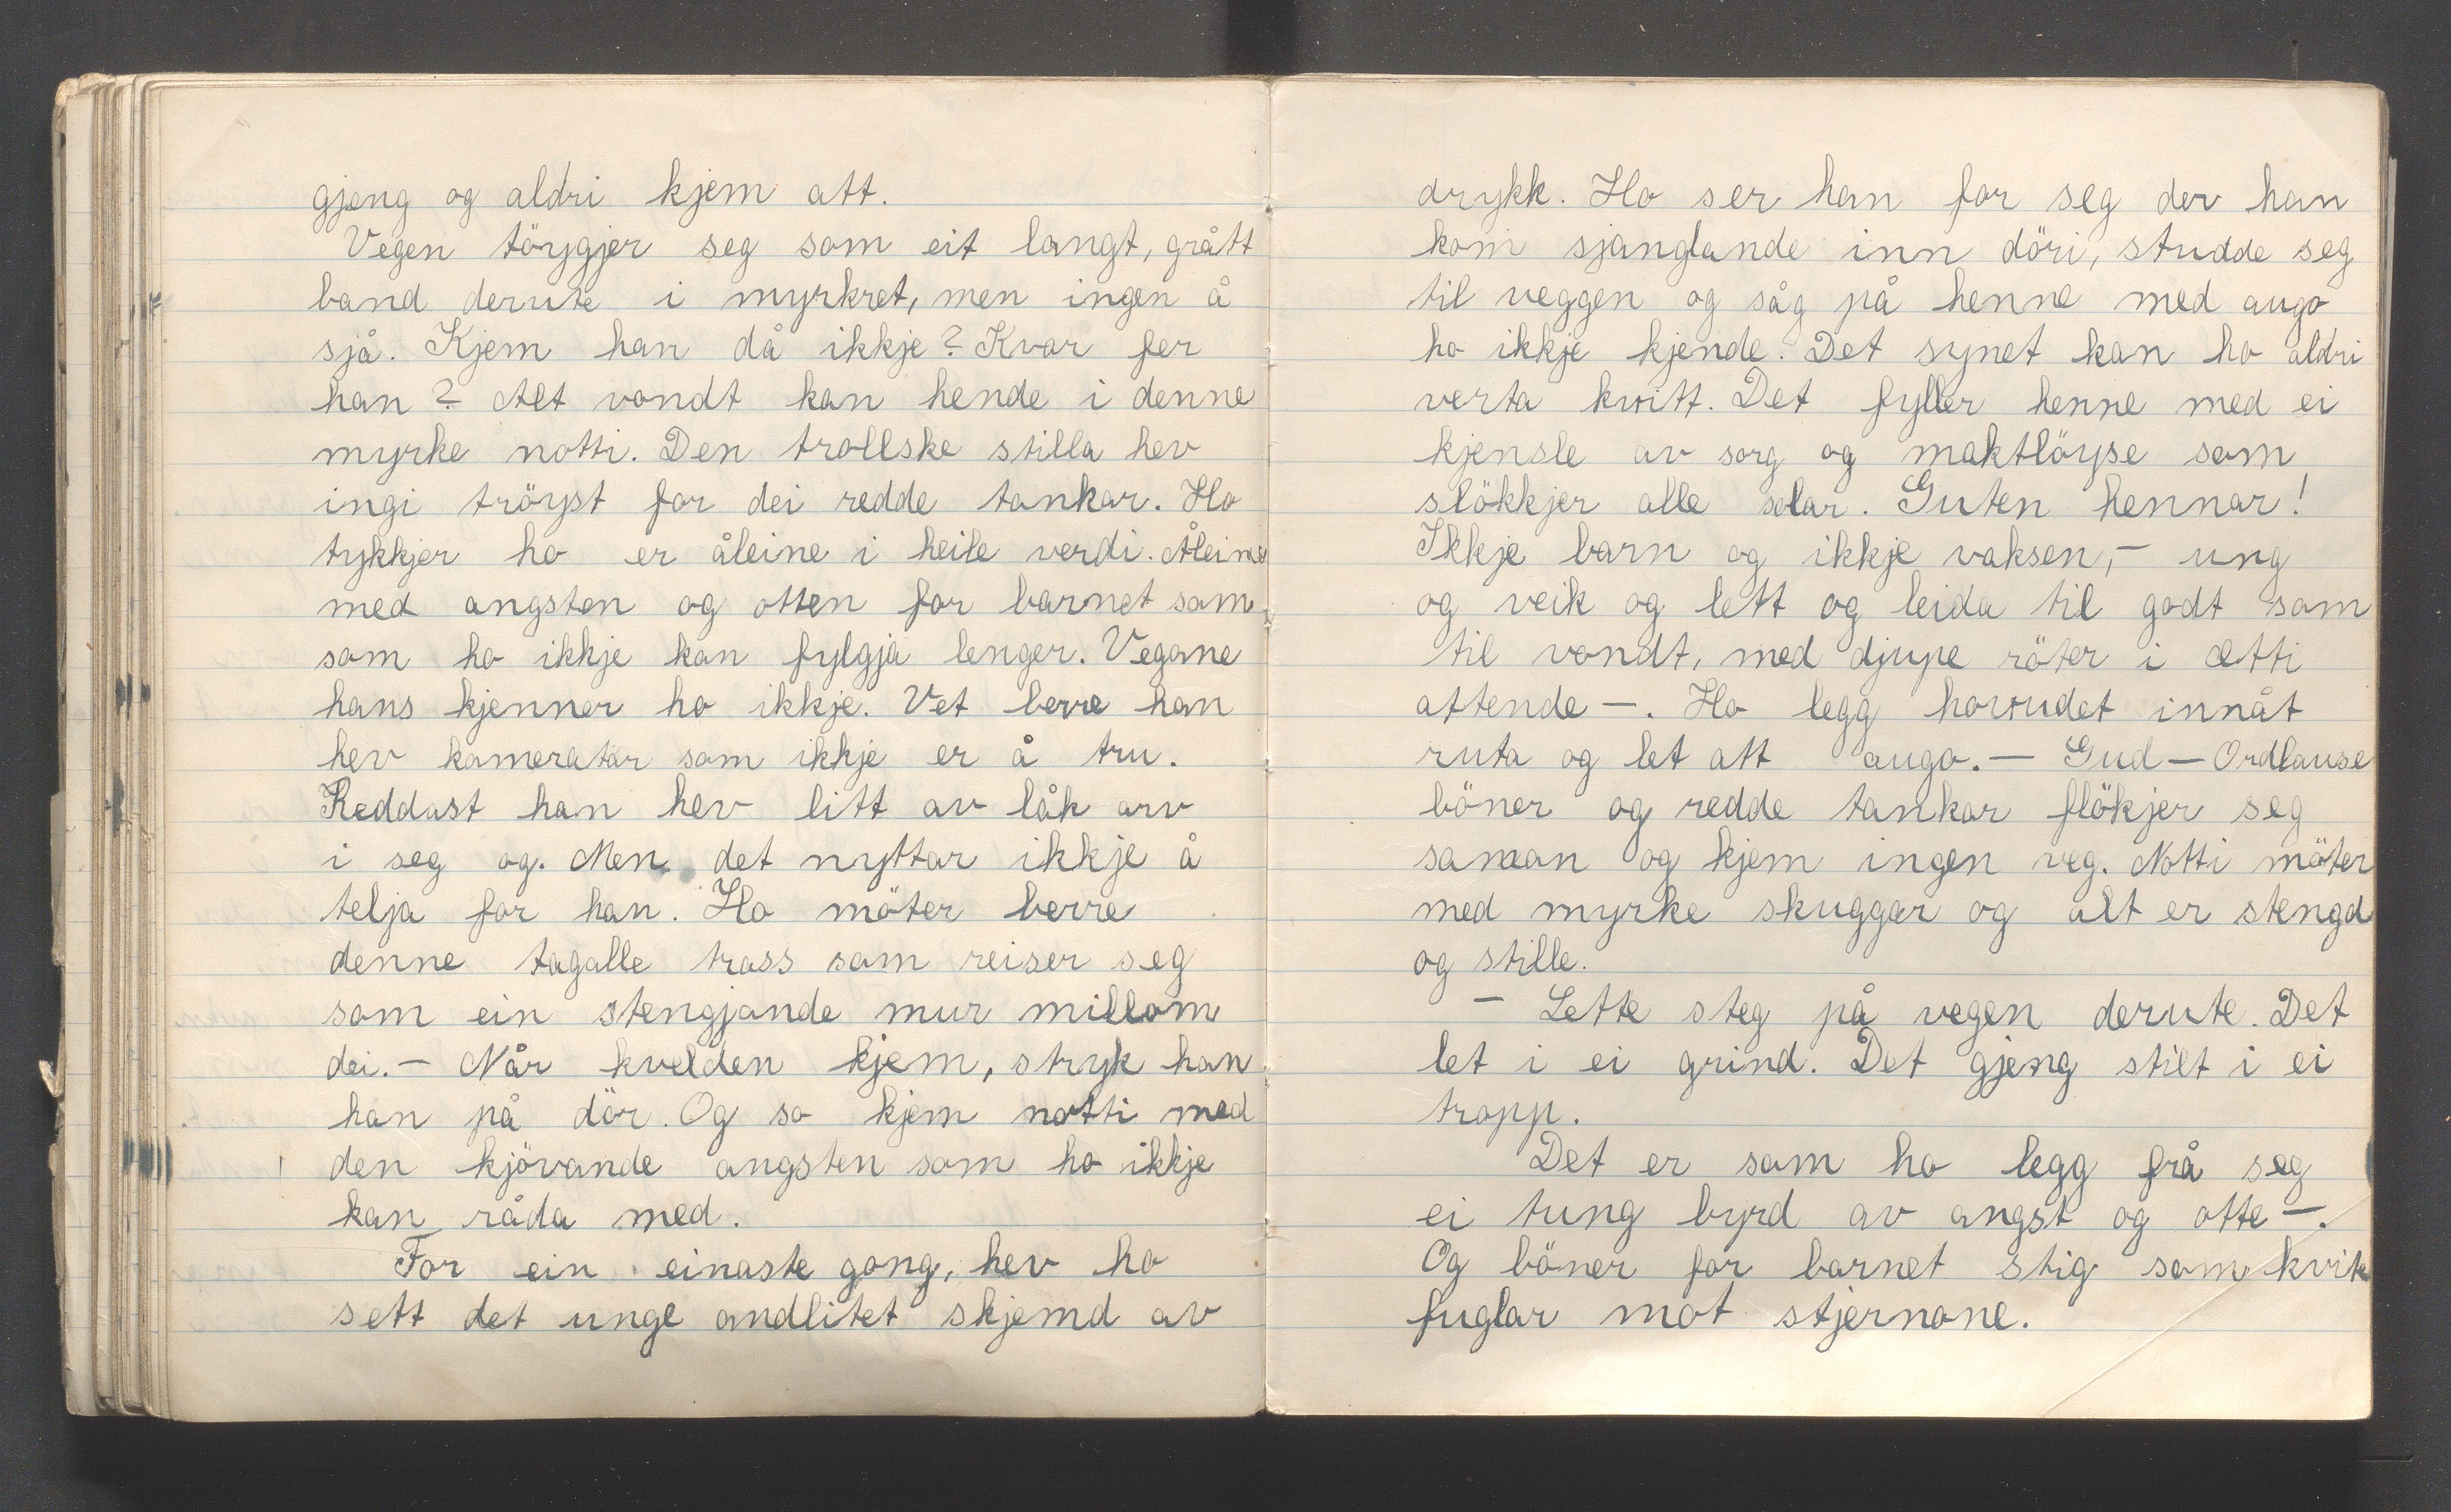 gjeng og aldri kjem att.
Vegen töygjer seg som eit langt, grått
band derute i myrkret, men ingen å
sjå. Kjem han då ikkje? Kvar fer
han? Alt vondt kan hende i denne
myrke notti. Den trollske stilla hev
ingi tröyst for dei redde tankar. Ho
tykkjer ho er åleine i heile verdi. Åleine
med angsten og otten for barnet som
som ho ikkje kan fylgja lenger. Vegane
hans kjenner ho ikkje. Vet berre han
hev kameratar som ikkje er å tru.
Reddast han hev litt av låk arv
i seg og. Men det nyttar ikkje å
telja for han. Ho möter berre
denne tagalle trass som reiser seg
som ein stengjande mur millom
dei. — Når kvelden kjem, stryk han
han på dör. Og so kjem notti med
den kjövande angsten som ho ikkje
kan råda med.
For ein einaste gong, hev ho
sett det unge andlitet skjemd av
drykk. Ho ser han for seg der han
kom sjanglande inn döri, studde seg
til veggen og såg på henne med augo
ho ikkje kjende. Det synet kan ho aldri
verta kvitt. Det fyller henne med ei
kjensle av sorg og maktlöyse som
slökkjer alle solar. Guten hennar!
Ikkje barn og ikkje vaksen, — ung
og veik og lett og leida til godt som
til vondt, med djupe röter i ætti
attende —. Ho legg hovudet innåt
ruta og let att augo. — Gud — Ordlause
böner og redde tankar flökjer seg
saman og kjem ingen veg. Notti möter
med myrke skuggar og alt er stengd
og stille.
— Lette steg på vegen derute. Det
let i ei grind. Det gjeng stilt i ei
tropp.
Det er som ho legg frå seg
ei tung byrd av angst og otte —.
Og böner for barnet stig som kvite
fuglar mot stjernone.